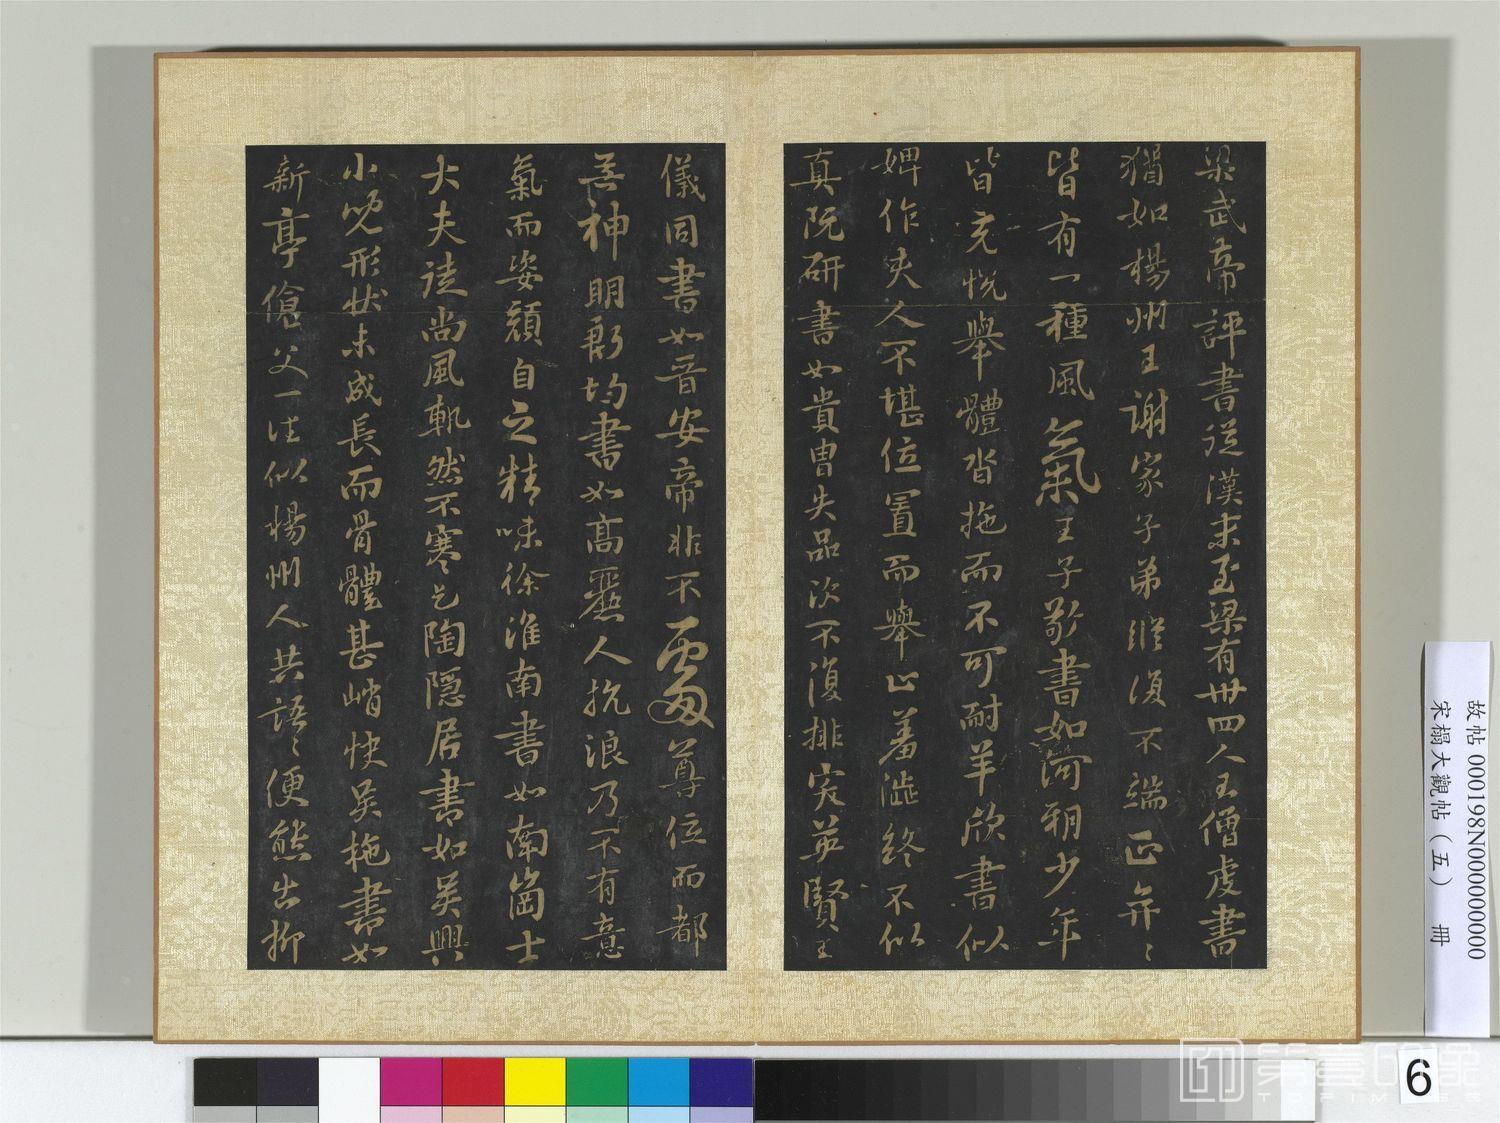 梁武帝評書從漢末至梁有卅四人王僧虔書
猶如楊州王謝家子弟縱復不端正奕〻
皆有一種風氣王子敬書如河朔少年
皆充悅舉體沓拖而不可耐羊欣書似
婢作夫人不堪位置而舉止羞澁終不似
真阮研書如貴胄失品次不復排突英賢王
儀同書如晉安帝非不處尊位而都
無神明庾肩吾書
殷鈞書如高麗人抗浪乃不有意
氣而姿顏自足精味徐淮南書如南崗士
大夫徒尚風軌然不寒乞陶隱居書如吳興
小兒形狀未成長而骨體甚峭快吳施書如
新亭傖父一往似楊州人共語〻便態出柳
故帖 000198N000000000
宋榻大觀帖（五） 冊
6